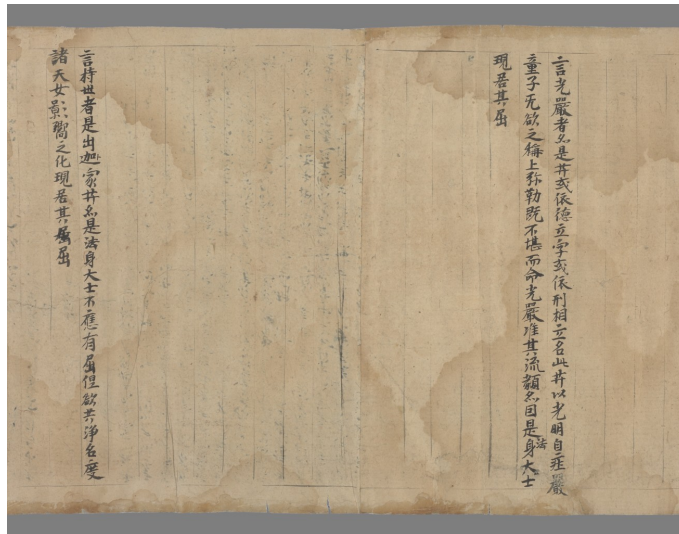 言光嚴者亦是井或依德立字或依刑相立名此井以光明自庄嚴
童子无欲之稱上弥勒既不堪而命光嚴准其流類亦同是法身大士
現居其屈
言持世者是出家井亦是法身大士不應有屈但欲共淨名度
諸天女影嚮之化現居其屈屈